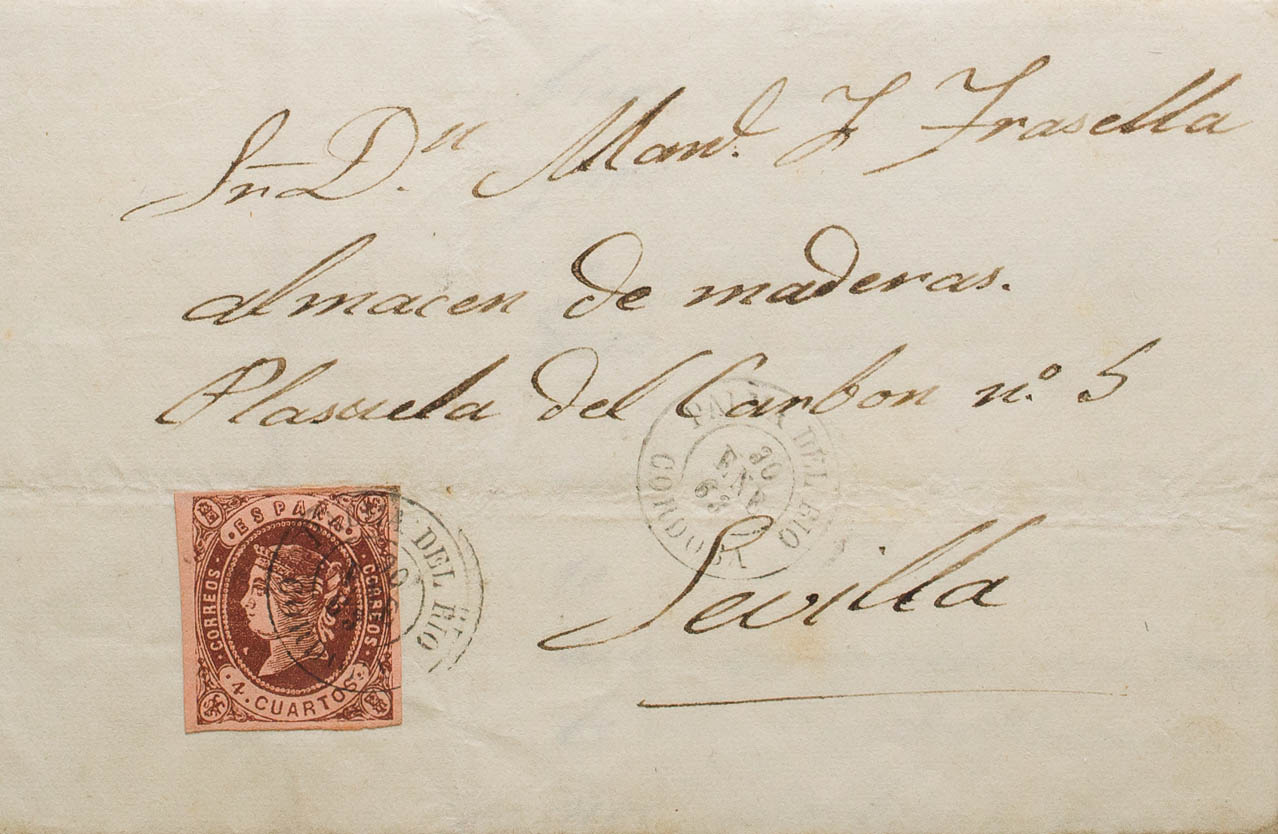 Sr. Dn. Manl. J Frasella
almacen de maderas.
Plasuela del Carbon nº. 5
PALMA DEL RIO
20
ENE
63
CORDOBA
Sevilla
ESPAÑA
CORREOS
CORREOS
4. CUARTOS
DEL RIO